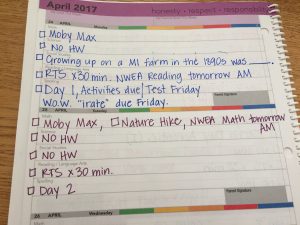 April 2017
honesty • respect • responsibility
24 APRIL Monday
Moby Max
NO HW
Growing up on a MI farm in the 1890s was ____.
RTS x30 min. NWEA Reading tomorrow AM
Day 1, Activities due/Test Friday
W.O.W. "irate" due Friday.
Parent Signature
25 APRIL
Math
Moby Max, Nature Hike, NWEA Math tomorrow AM
NO HW
Social Studies
NO HW
Reading / Language Arts
RTS x 30 min.
Spelling
Day 2
Parent Signature
26 APRIL Wednesday